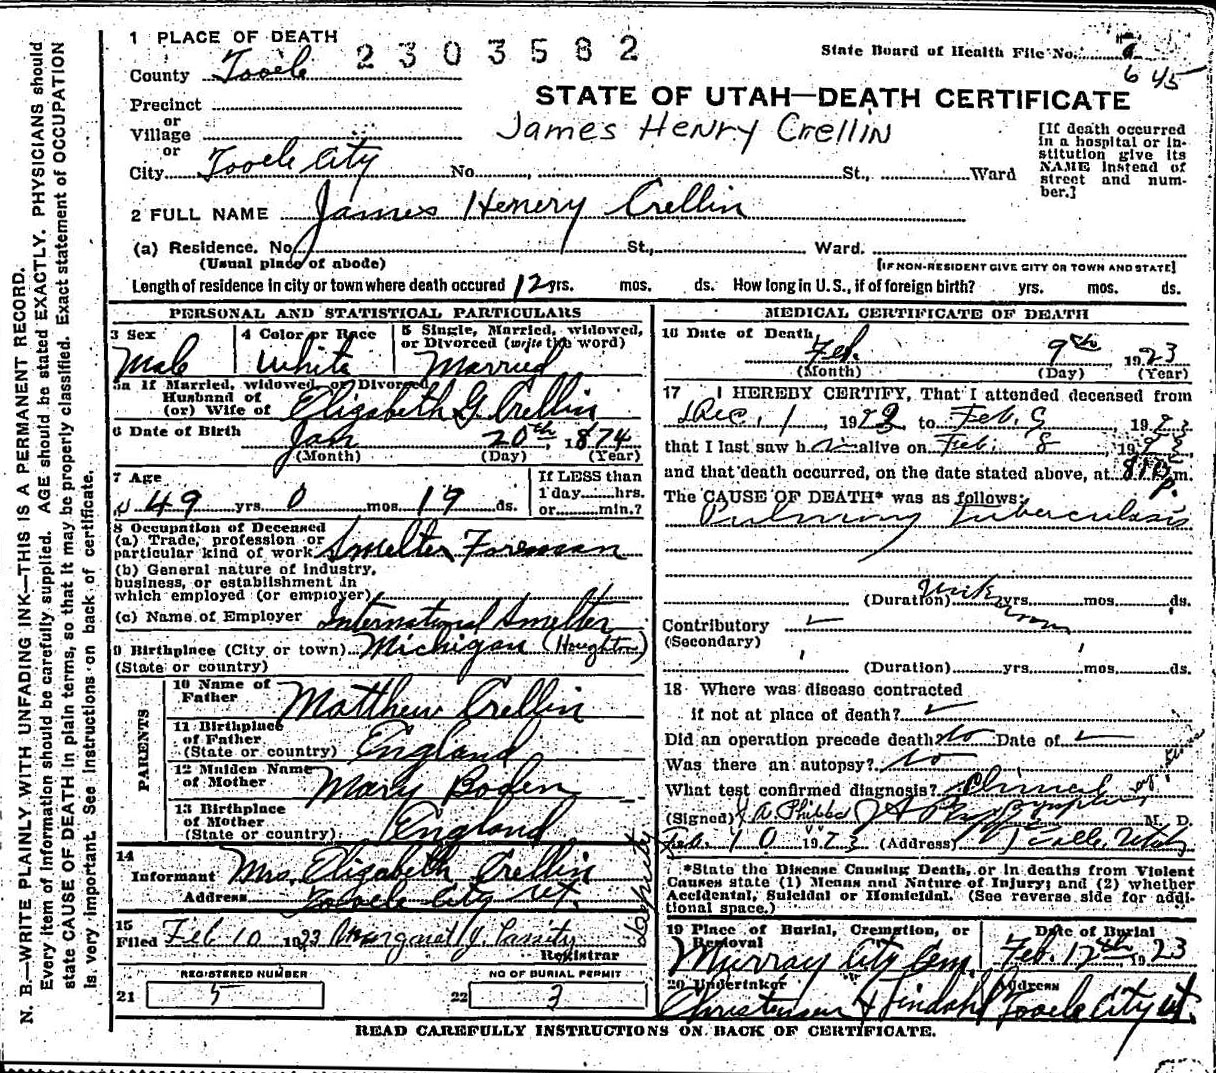 1 PLACE OF DEATH
2303582
State Board of Health File No.
645
County Tooele
STATE OF UTAH—DEATH CERTIFICATE
James Henry Crellin
Precinct
or
Village
or
City Tooele City No. St., Ward
[If death occurred
in a hospital or in-
stitution give its
NAME instead of
street and num-
ber.]
2 FULL NAME James Henery Crellin
(a) Residence. No. St., Ward.
(Usual place of abode)
[IF NON-RESIDENT GIVE CITY OR TOWN AND STATE]
Length of residence in city or town where death occured 12 yrs. mos. ds. How long in U. S., if of foreign birth? yrs. mos. ds.
PERSONAL AND STATISTICAL PARTICULARS
3 Sex
Male
4 Color or Race
White
5 Single, Married, widowed,
or Divorced (write the word)
Married
5a If Married, widowed, or Divorced
Husband of
(or) Wife of Elizabeth G. Crellin
6 Date of Birth Jan 20th 1874
(Month) (Day) (Year)
7 Age
49 yrs. 0 mos. 19 ds.
If LESS than
1 day hrs.
or min.?
8 Occupation of Deceased
(a) Trade, profession or
particular kind of work Smelter Foreman
(b) General nature of industry,
business, or establishment in
which employed (or employer)
(c) Name of Employer International Smelter
9 Birthplace (City or town) Michigan (Houghton)
(State or country)
PARENTS
10 Name of
Father Matthew Crellin
11 Birthplace
of Father
(State or country) England
12 Maiden Name
of Mother Mary Boden
13 Birthplace
of Mother
(State or country) England
14
Informant Mrs. Elizabeth Crellin
Address Tooele City Ut.
15
Filed Feb 10 1923 Margaret J.
Deputy
Registrar
REGISTERED NUMBER
21 5
NO OF BURIAL PERMIT
22 3
MEDICAL CERTIFICATE OF DEATH
16 Date of Death
Feb. 9th 1923
(Month) (Day) (Year)
17 I HEREBY CERTIFY, That I attended deceased from
Dec. 1, 192 to Feb. 9 1923
that I last saw h alive on Feb. 8, 192
and that death occurred, on the date stated above, at m.
The CAUSE OF DEATH* was as follows:
Pulmonary Tuberculosis
(Duration) Unknown yrs. mos. ds.
Contributory
(Secondary)
(Duration) yrs. mos. ds.
18 Where was disease contracted
if not at place of death?
Did an operation precede death? No Date of
Was there an autopsy? No
What test confirmed diagnosis? Clinical
(Signed) J A Phipps M. D.
Feb. 10 1923 (Address) Tooele, Utah
*State the Disease Causing Death, or in deaths from Violent
Causes state (1) Means and Nature of Injury; and (2) whether
Accidental, Suicidal or Homicidal. (See reverse side for addi-
tional space.)
19 Place of Burial, Cremation, or
Removal
Murray City Cem.
Date of Burial
Feb. 12th 1923
20 Undertaker
Christensen & Lindahl
Address
Tooele City Ut.
READ CAREFULLY INSTRUCTIONS ON BACK OF CERTIFICATE.
N. B.—WRITE PLAINLY WITH UNFADING INK—THIS IS A PERMANENT RECORD.
Every item of information should be carefully supplied. AGE should be stated EXACTLY. PHYSICIANS should
state CAUSE OF DEATH in plain terms, so that it may be properly classified. Exact statement of OCCUPATION
is very important. See instructions on back of certificate.